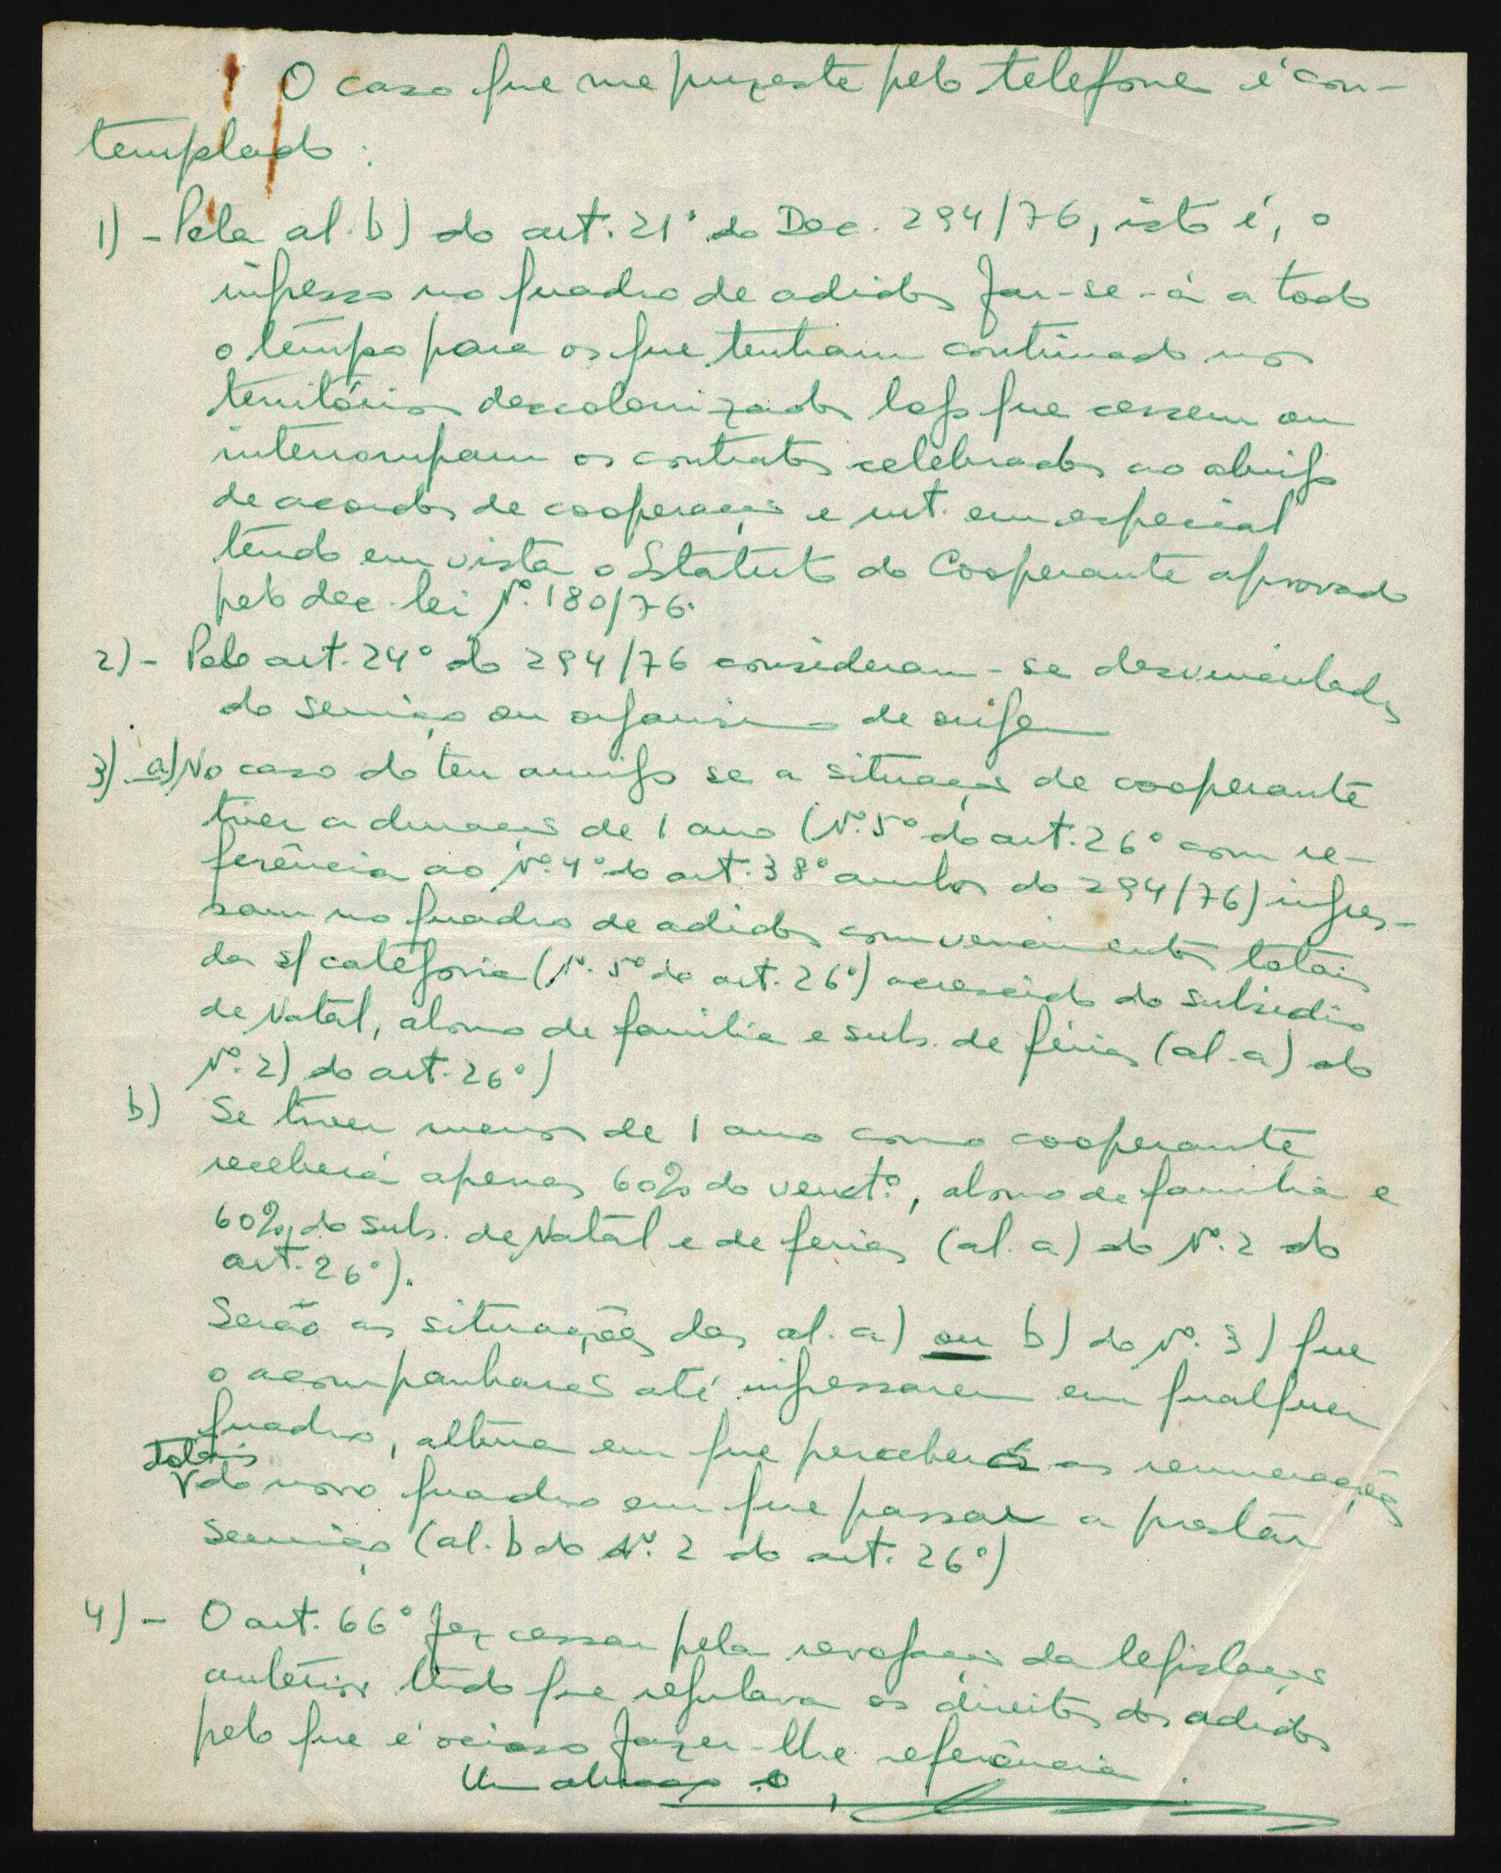 O caso que me puzeste pelo telefone é con-
templado:
1) - Pela al. b) do art. 21º do Dec. 294/76, isto é, o
ingresso no quadro de adidos far-se-á a todo
o tempo para os que tenham continuado nos
territórios descolonizados logo que cessem ou
interrompam os contratos celebrados ao abrigo
de acordos de cooperação e mt. em especial
tendo em vista o Statuto do Cooperante aprovado
pelo dec. lei Nº. 180/76.
2) - Pelo art. 24º do 294/76 consideram-se desvinculados
do serviço ou organismo de origem
3) - a) No caso do teu amigo se a situação de cooperante
tiver a duração de 1 ano (Nº. 5º do art. 26º com re-
ferência ao Nº. 4º do art. 38º ambos do 294/76) ingres-
sam no quadro de adidos com vencimentos totais
da s/ categoria (Nº. 5º do art. 26º) acrescido do subsidio
de Natal, abono de família e subs. de férias (al. a) do
Nº. 2) do art. 26º)
b) Se tiver menos de 1 ano como cooperante
receberá apenas 60% do venctº., abono de família e
60% do subs. de Natal e de ferias (al. a) do Nº. 2 do
art. 26º).
Serão as situações das al. a) ou b) do Nº. 3) que
o acompanharão até ingressarem em qualquer
quadro, altura em que perceberá as remunerações
totais
do novo quadro em que passar a prestar
serviço (al. b do Nº. 2 do art. 26º)
4) - O art. 66º fez cessar pela revogação da legislação
anterior tudo que regulava os direitos dos adidos
pelo que é ocioso fazer-lhe referência.
Um abraço do